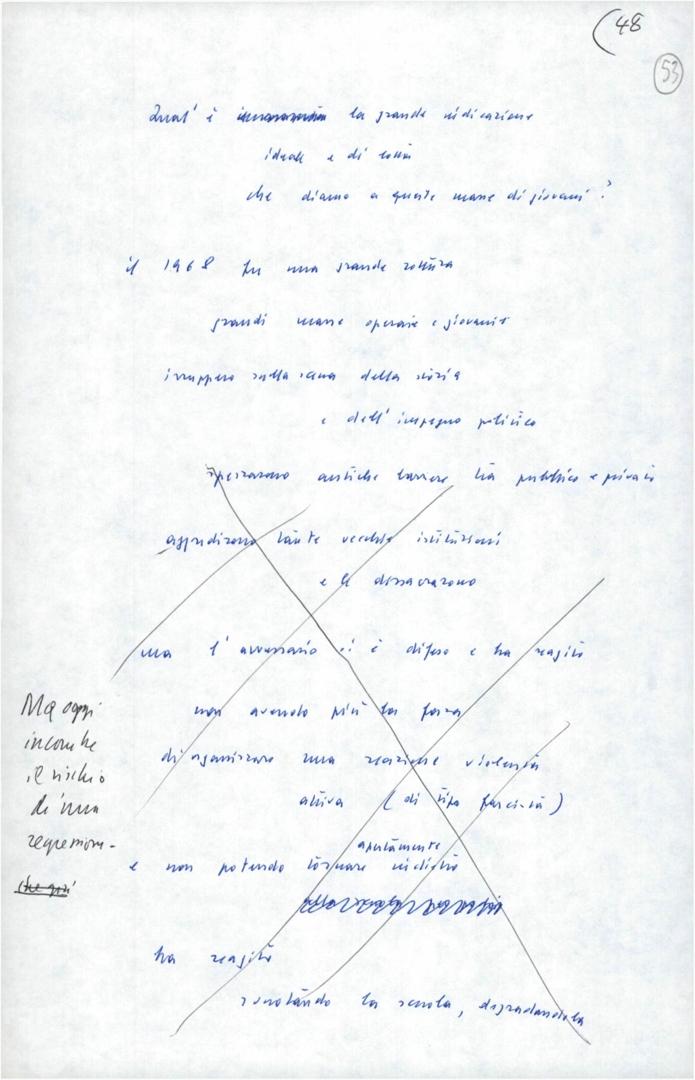 (48
53
Qual' è la grande indicazione
ideale e di lotta
che diamo a queste masse di giovani?
il 1968 fu una grande rottura
grandi masse operaie e giovanili
irruppero sulla scena della storia
e dell'impegno politico
spezzarono antiche barriere tra pubblico e privato
aggredirono tante vecchie istituzioni
e le dissacrarono
ma l'avversario si è difeso e ha reagito
non avendo più la forza
di organizzare una reazione violenta
attiva (di tipo fascista)
apertamente
e non potendo tornare indietro
ha reagito
svuotando la scuola, degradandola
Ma oggi
incombe
il rischio
di una
regressione -